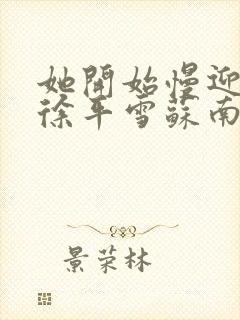 她開始慢迎
徐平雪蘇南
景荣林